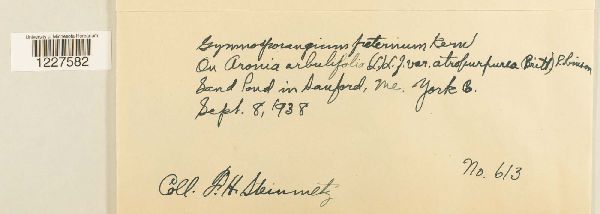 University of Minnesota Herbarium
1227582
Gymnosporangium fraternum Kern
On Aronia arbutifolia (L.) L.f. var. atropurpurea (Britt.) Robinson
Sand Pond in Sanford, Me. York C.
Sept. 8, 1938
No. 613
Coll. F. H. Steinmetz